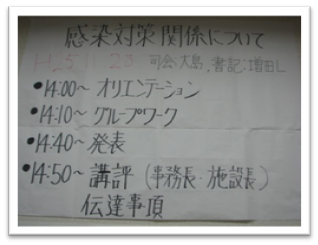 感染対策関係について
H25.11.23 司会:大島、書記:増田し
●14:00~ オリエンテーション
●14:10~ グループワーク
●14:40~ 発表
●14:50~ 講評（事務長・施設長）
伝達事項